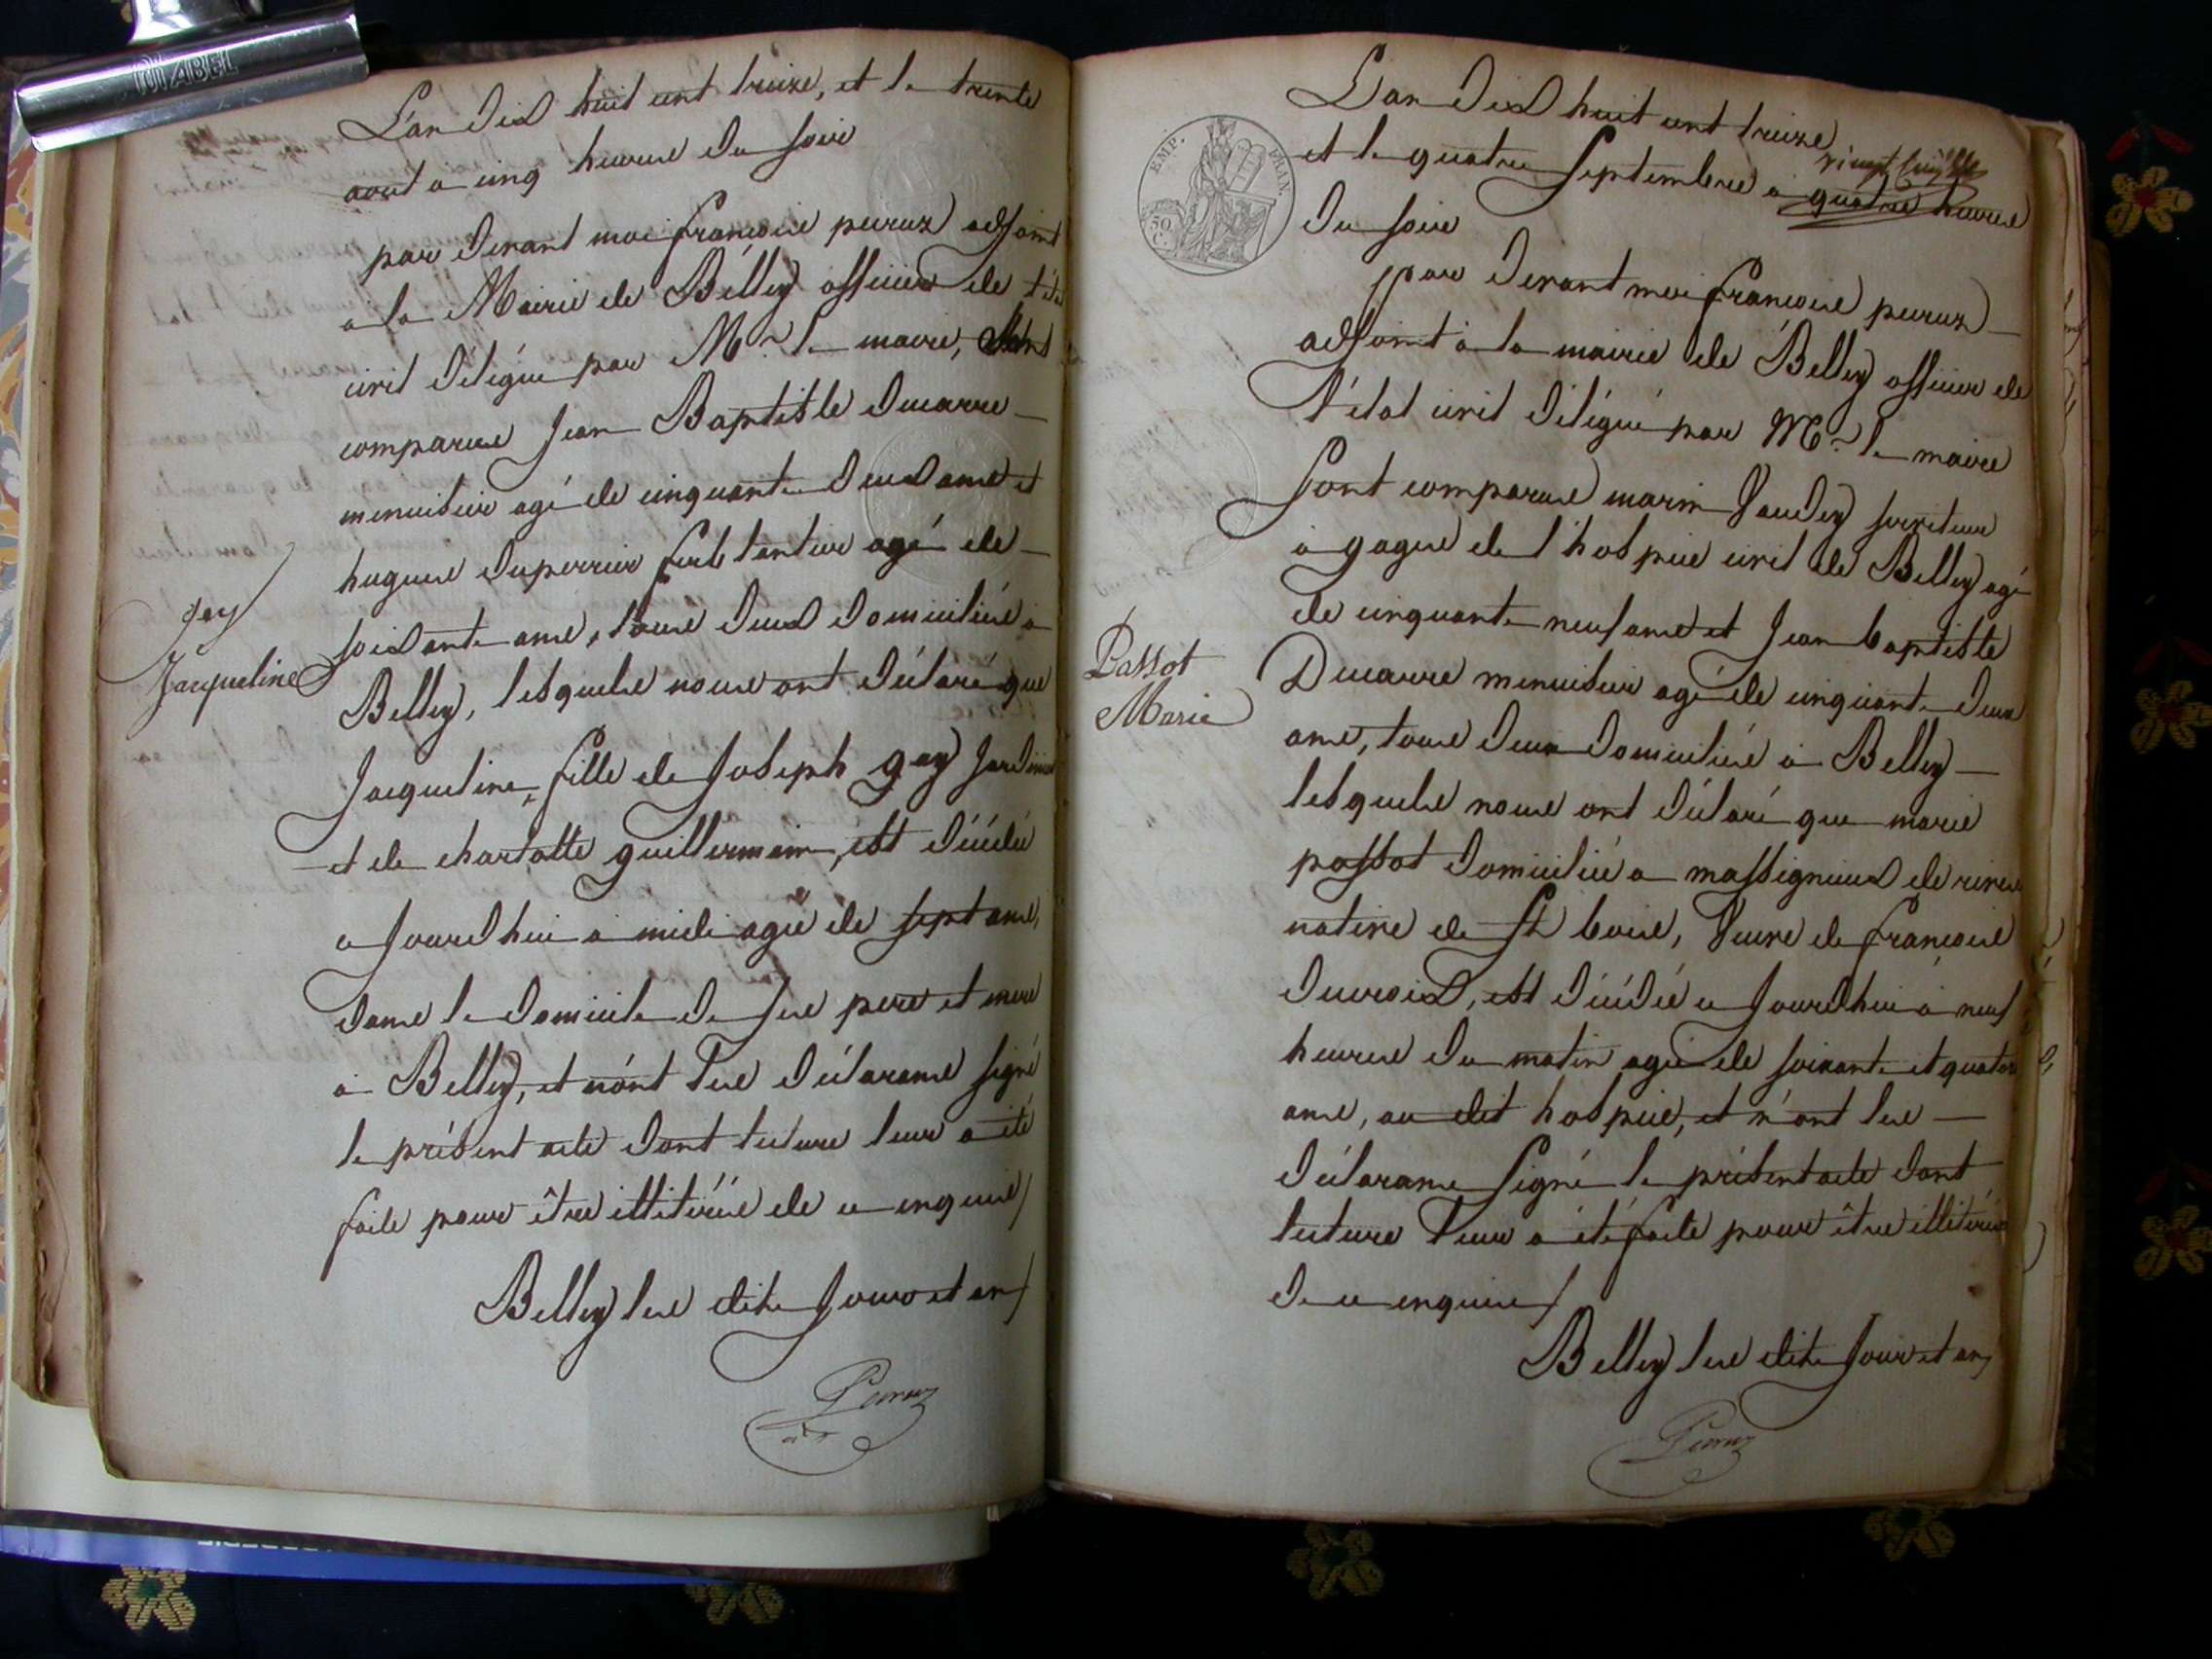 DIABEL
L'an dix huit cent treize, et le trente
aout a cinq heures du soir
par devant moi francois peruz adjoint
a la Mairie de Belley officier de l'état
civil délégué par Mr. le maire, sont
comparus Jean Baptiste Ducarre
menuisier agé de cinquante deux ans et
hugues duperrier ferblantier agé de
soixante ans, tous deux domiciliés à
Belley, lesquels nous ont déclaré que
Jacqueline, fille de Joseph gay Jardinier
et de charlotte guillermain, est décédée
aujourd'hui a midi agée de sept ans,
dans le domicile de ses pere et mere
à Belley, et n'ont les déclarans signé
le présent acte dont lecture leur a été
faite pour être illitérés de ce enquis
Belley les dits jour et an
Peruz
gay
Jacqueline
EMP. FRAN.
50 C.
L'an dix huit cent treize
et le quatre Septembre a quatre heures
du soir
par devant moi francois peruz
adjoint à la mairie de Belley officier de
l'état civil délégué par Mr. le maire
Sont comparus marin Vaudey serviteur
à gages de l'hospice civil de Belley agé
de cinquante neuf ans et Jean baptiste
Ducarre menuisier agé de cinquante deux
ans, tous deux domiciliés à Belley
lesquels nous ont déclaré que marie
passot domiciliée a massignieux de rives
native de St bois, Veuve de francois
ducroix, est décédée aujourd'hui à neuf
heures du matin agée de soixante et quatre
ans, au dit hospice, et n'ont les
déclarans signé le présent acte dont
lecture leur a été faite pour être illitérés
de ce enquis
Belley les dits jour et an
Peruz
Passot
Marie